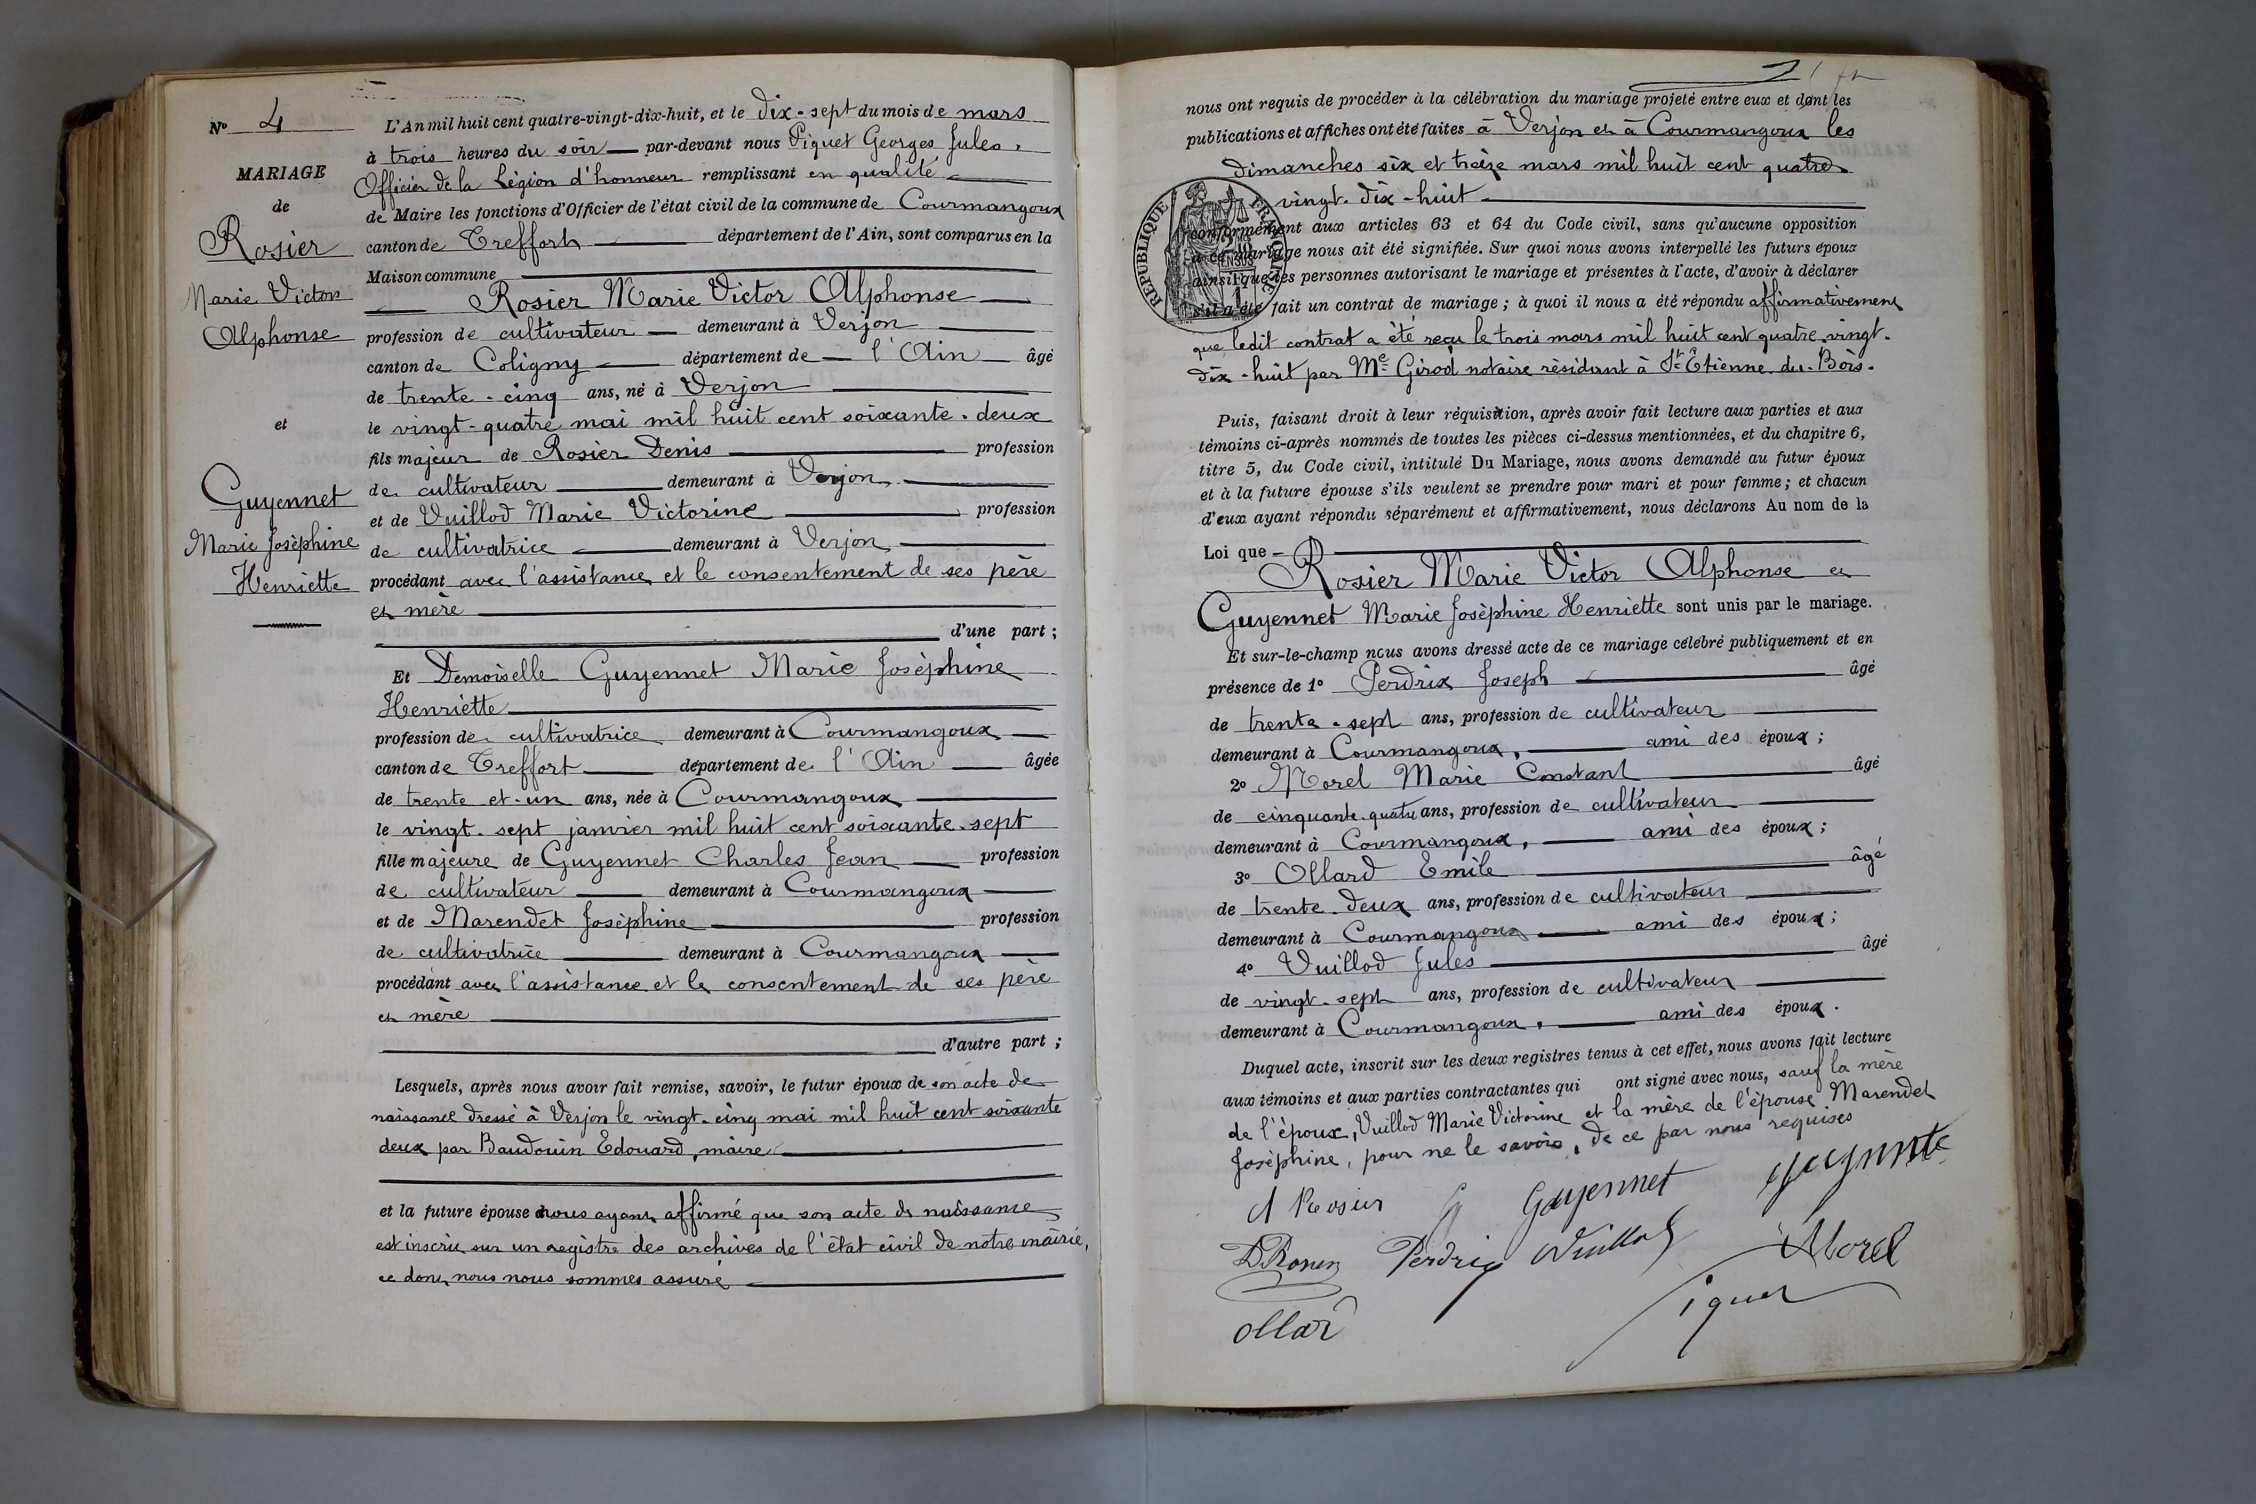 Nº 4
MARIAGE
de
Rosier
Marie Victor
Alphonse
et
Guyennet
Marie Josèphine
Henriette
L'An mil huit cent quatre-vingt-dix-huit, et le dix-sept du mois de mars
à trois heures du soir par-devant nous Piquet Georges Jules,
Officier de la Légion d'honneur remplissant en qualité
de Maire les fonctions d'Officier de l'état civil de la commune de Courmangoux
canton de Treffort département de l'Ain, sont comparus en la
Maison commune
Rosier Marie Victor Alphonse
profession de cultivateur demeurant à Verjon
canton de Coligny département de l'Ain âgé
de trente-cinq ans, né à Verjon
le vingt-quatre mai mil huit cent soixante-deux
fils majeur de Rosier Denis profession
de cultivateur demeurant à Verjon
et de Vuillod Marie Victorine profession
de cultivatrice demeurant à Verjon
procédant avec l'assistance et le consentement de ses père
et mère
d'une part ;
Et Demoiselle Guyennet Marie Josèphine
Henriette
profession de cultivatrice demeurant à Courmangoux
canton de Treffort département de l'Ain âgée
de trente et-un ans, née à Courmangoux
le vingt-sept janvier mil huit cent soixante-sept
fille majeure de Guyennet Charles Jean profession
de cultivateur demeurant à Courmangoux
et de Marendet Josèphine profession
de cultivatrice demeurant à Courmangoux
procédant avec l'assistance et le consentement de ses père
et mère
d'autre part ;
Lesquels, après nous avoir fait remise, savoir, le futur époux de son acte de
naissance dressé à Verjon le vingt-cinq mai mil huit cent soixante
deux par Baudouin Edouard, maire
et la future épouse nous ayant affirmé que son acte de naissance
est inscrit sur un registre des archives de l'état civil de notre mairie,
ce dont nous nous sommes assuré
nous ont requis de procéder à la célébration du mariage projeté entre eux et dont les
publications et affiches ont été faites à Verjon et à Courmangoux les
dimanches six et treize mars mil huit cent quatre
vingt-dix-huit
RÉPUBLIQUE FRANÇAISE
conformément aux articles 63 et 64 du Code civil, sans qu'aucune opposition
à ce mariage nous ait été signifiée. Sur quoi nous avons interpellé les futurs époux
ainsi que les personnes autorisant le mariage et présentes à l'acte, d'avoir à déclarer
s'il a été fait un contrat de mariage ; à quoi il nous a été répondu affirmativement
que ledit contrat a été reçu le trois mars mil huit cent quatre-vingt-
dix-huit par Me Girod notaire résidant à St Etienne-du-Bois.
Puis, faisant droit à leur réquisition, après avoir fait lecture aux parties et aux
témoins ci-après nommés de toutes les pièces ci-dessus mentionnées, et du chapitre 6,
titre 5, du Code civil, intitulé Du Mariage, nous avons demandé au futur époux
et à la future épouse s'ils veulent se prendre pour mari et pour femme ; et chacun
d'eux ayant répondu séparément et affirmativement, nous déclarons Au nom de la
Loi que
Rosier Marie Victor Alphonse et
Guyennet Marie Josèphine Henriette sont unis par le mariage.
Et sur-le-champ nous avons dressé acte de ce mariage célébré publiquement et en
présence de 1º Perdrix Joseph âgé
de trente-sept ans, profession de cultivateur
demeurant à Courmangoux, ami des époux ;
2º Morel Marie Constant âgé
de cinquante-quatre ans, profession de cultivateur
demeurant à Courmangoux, ami des époux ;
3º Ollard Emile âgé
de trente-deux ans, profession de cultivateur
demeurant à Courmangoux ami des époux ;
4º Vuillod Jules âgé
de vingt-sept ans, profession de cultivateur
demeurant à Courmangoux, ami des époux.
Duquel acte, inscrit sur les deux registres tenus à cet effet, nous avons fait lecture
aux témoins et aux parties contractantes qui ont signé avec nous, sauf la mère
de l'époux, Vuillod Marie Victorine et la mère de l'épouse Marendet
Josèphine, pour ne le savoir, de ce par nous requises
A Rosier Guyennet
Perdrix Vuillod Morel
Ollard Piquet